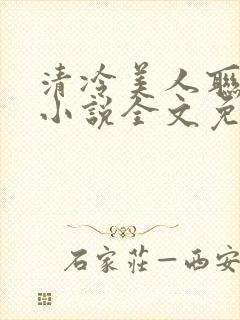 清冷美人聯
小説全文免
石家莊—西安